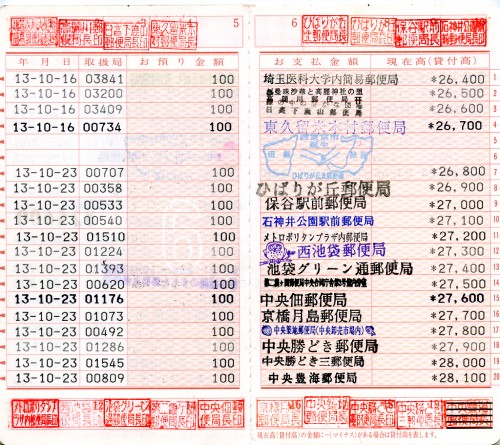 5
年月日 取扱局 お預り金額
13-10-16 03841 100
13-10-16 03200 100
13-10-16 03409 100
13-10-16 00734 100
13-10-23 00707 100
13-10-23 00358 100
13-10-23 00533 100
13-10-23 00540 100
13-10-23 01510 100
13-10-23 01224 100
13-10-23 01393 100
13-10-23 00620 100
13-10-23 01176 100
13-10-23 01073 100
13-10-23 00492 100
13-10-23 01286 100
13-10-23 01545 100
13-10-23 00809 100
6
お支払金額 現在高(貸付高)
埼玉医科大学内簡易郵便局 *26,400
*26,500
*26,600
東久留米本村郵便局 *26,700
*26,800
ひばりが丘郵便局 *26,900
保谷駅前郵便局 *27,000
石神井公園駅前郵便局 *27,100
メトロポリタンプラザ内郵便局 *27,200
西池袋郵便局 *27,300
池袋グリーン通郵便局 *27,400
*27,500
中央佃郵便局 *27,600
京橋月島郵便局 *27,700
中央築地郵便局(中央卸売市場内) *27,800
中央勝どき郵便局 *27,900
中央勝どき三郵便局 *28,000
中央豊海郵便局 *28,100
現在高(貸付高)の金額に-(マイナス)がある場合は貸付高を表します。